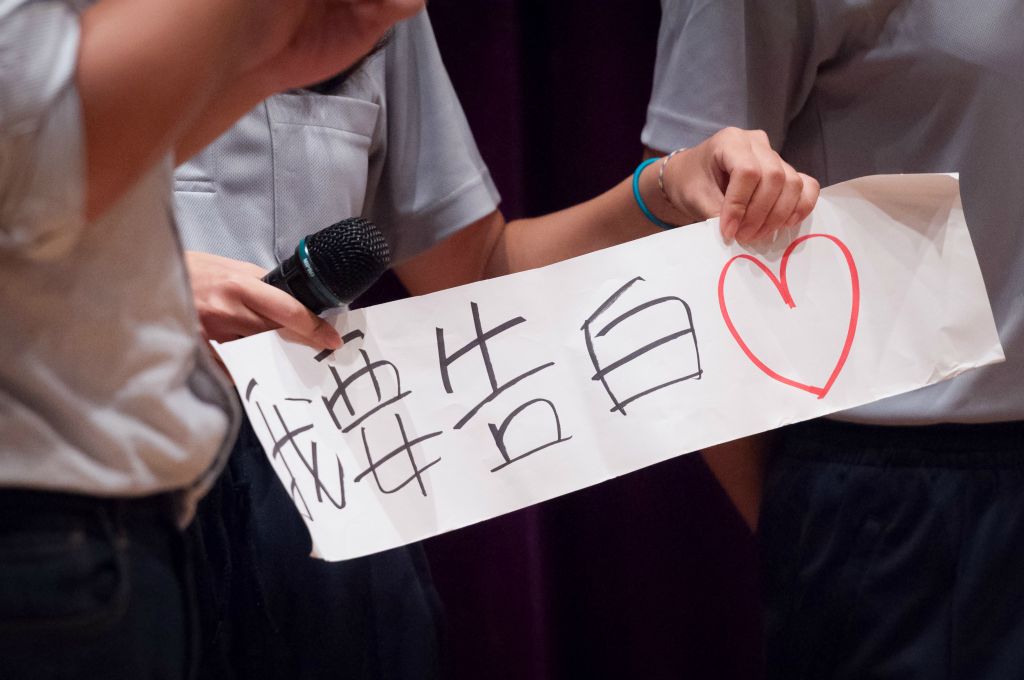 我要告白